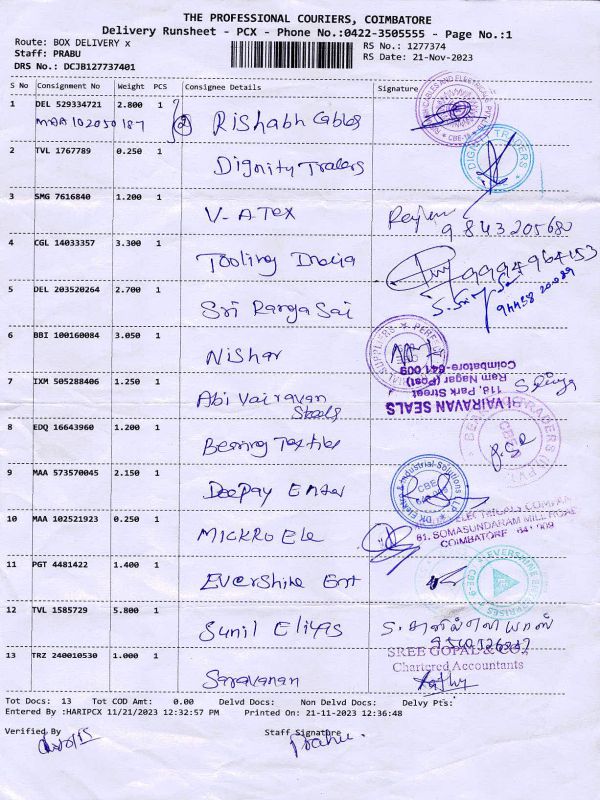 THE PROFESSIONAL COURIERS, COIMBATORE
Delivery Runsheet - PCX - Phone No.:0422-3505555 - Page No.:1
Route: BOX DELIVERY x
RS No.: 1277374
Staff: PRABU
RS Date: 21-Nov-2023
DRS No.: DCJB127737401
S No Consignment No Weight PCS Consignee Details Signature
1 DEL 529334721 2.800 1 Rishabh Cables
MAA 102050187
2 TVL 1767789 0.250 1 Dignity Traders
3 SMG 7616840 1.200 1 V-ATex
9843205680
4 CGL 14033357 3.300 1 Tooling India
9994964153
5 DEL 203520264 2.700 1 Sri Ranga Sai
6 BBI 100160084 3.050 1 Nishar
7 IXM 505288406 1.250 1 Abi Vairavan
Seals
VAIRAVAN SEALS
11d, Park Street
Ram Nagar (Post)
Coimbatore-641 009
8 EDQ 16643960 1.200 1 Textiles
9 MAA 573570045 2.150 1 Deepay Enter
10 MAA 102521923 0.250 1 MICKRO Ele
ELECTRICALS COMPANY
61, SOMASUNDARAM MILL ROAD
COIMBATORE 641 009
11 PGT 4481422 1.400 1 Evershine Ent
12 TVL 1585729 5.800 1 Sunil Eliyas
13 TRZ 240010530 1.000 1 Saravanan
SREE GOPAL & CO.,
Chartered Accountants
Tot Docs: 13 Tot COD Amt: 0.00 Delvd Docs: Non Delvd Docs: Delvy Pts:
Entered By :HARIPCX 11/21/2023 12:32:57 PM Printed On: 21-11-2023 12:36:48
Verified By Staff Signature
Prabu.